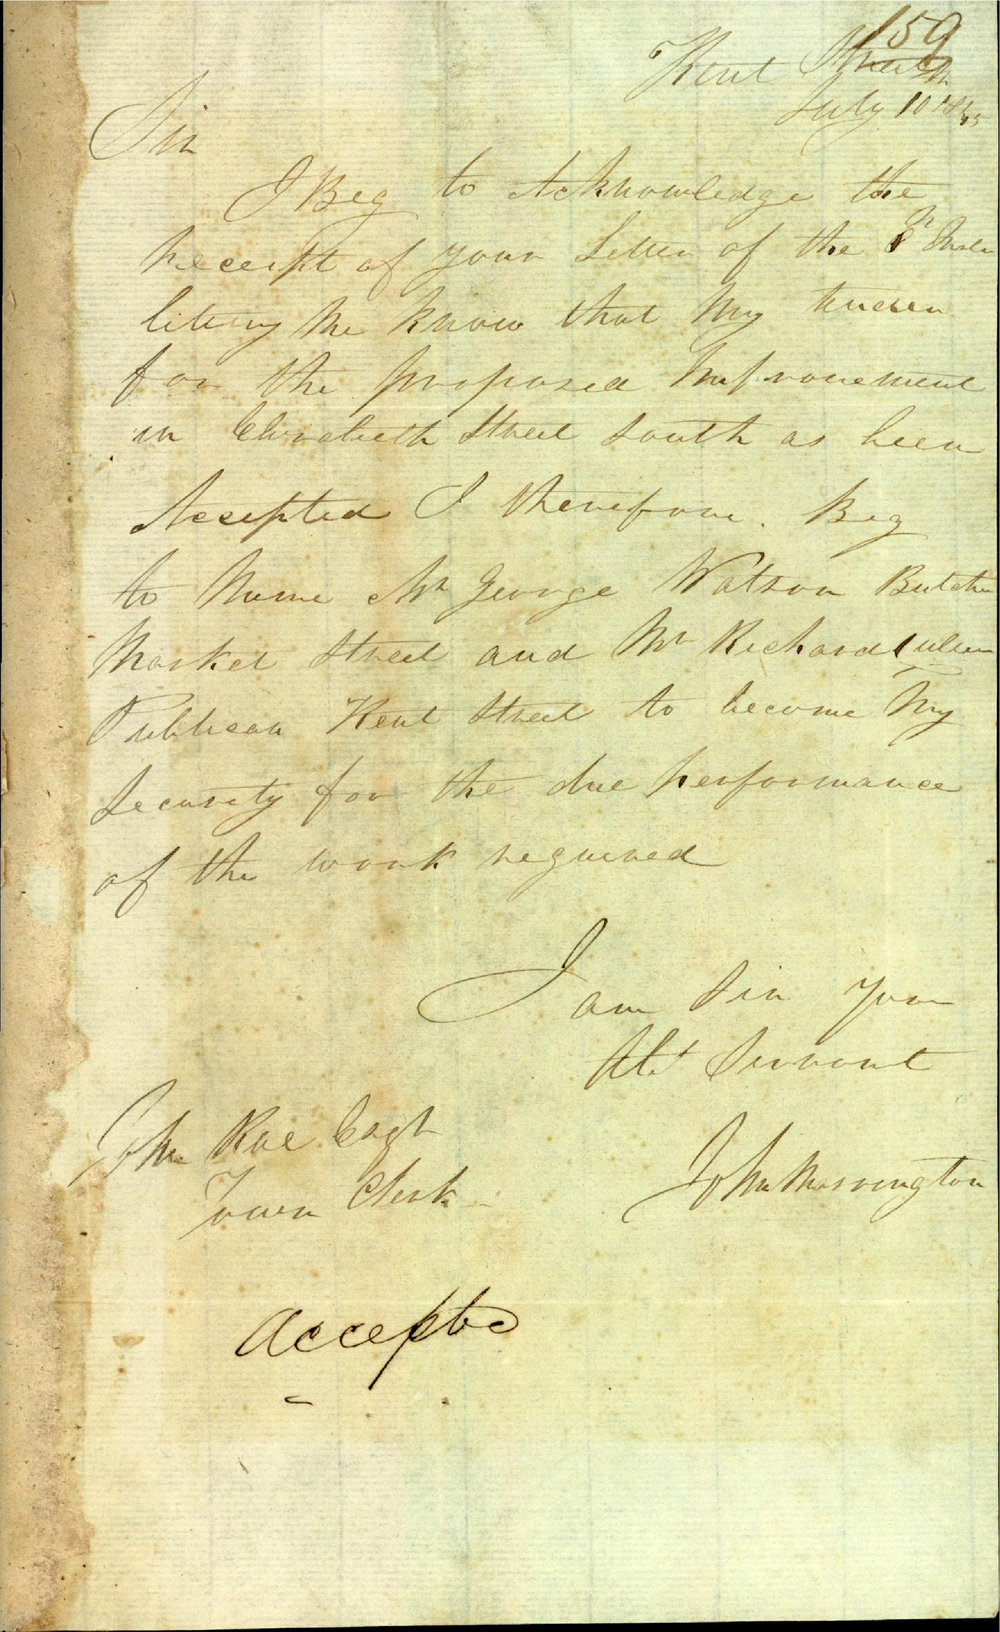 159
Kent Street
July 10 1845
Sir
I Beg to Acknowledge the
receipt of your Letter of the 8th Inst
liting Me know that My tender
for the proposed Improvement
in Elizabeth Street South as been
Accepted I therefore. Beg
to Name Mr George Watson Butcher
Market Street and Mr Richard
Publican Kent Street to become My
Security for the due performance
of the work required
I am Sir your
Obt Servant
John Rae Esqr
Town Clerk
John Morrington
Accepted